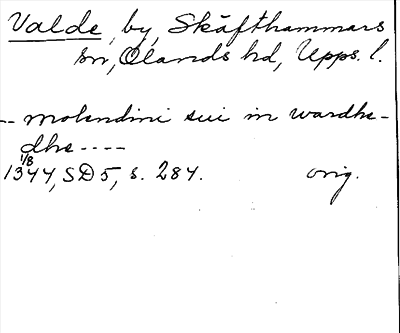 Valde, by, Skäfthammars
sn, Olands hd, Upps. l.
-- molendini sui in wardhe-
dhe ----
1/8
1344, SD 5, s. 284. orig.